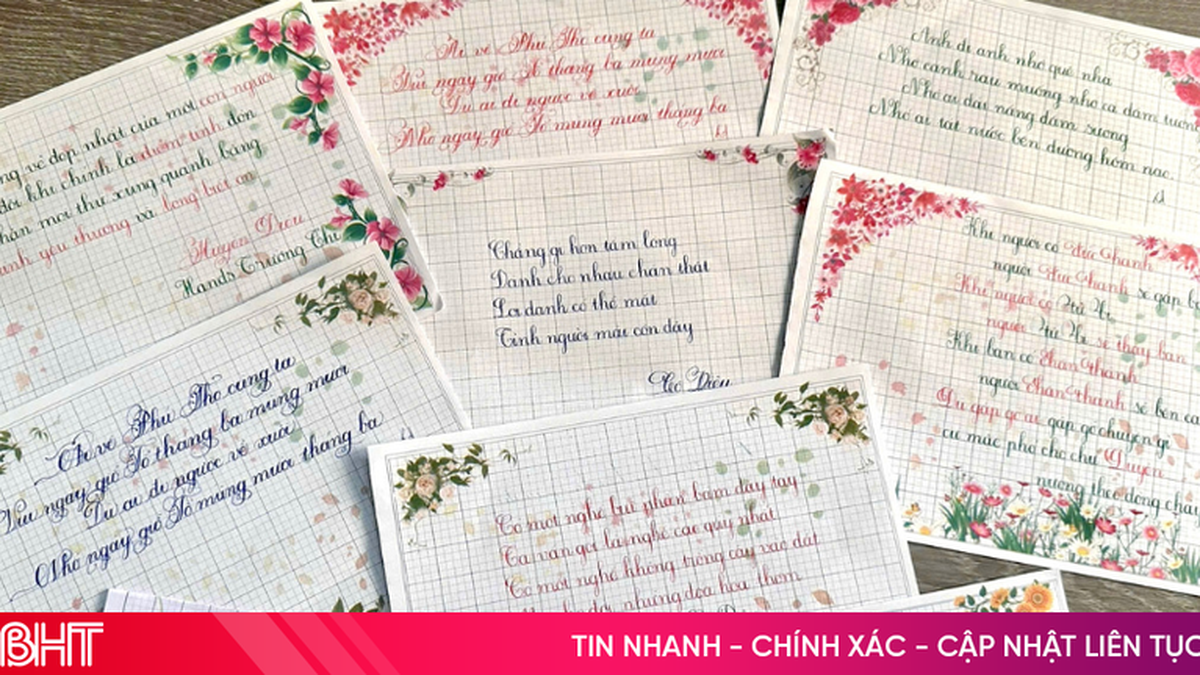 ng vẻ đẹp nhất của một con người
đôi khi chính là điềm tĩnh đón
nhận mọi thứ xung quanh bằng
yêu thương và lòng biết ơn
Huyen Dieu
Hands Trường Thi
Ai về Phú Thọ cùng ta
Vui ngày giỗ Tổ tháng ba mùng mười
Dù ai đi ngược về xuôi
Nhớ ngày giỗ Tổ mùng mười tháng ba
Anh đi anh nhớ quê nhà
Nhớ canh rau muống nhớ cà dầm tương
Nhớ ai dãi nắng dầm sương
Nhớ ai tát nước bên đường hôm nao.
Chẳng gì hơn tấm lòng
Dành cho nhau chân thật
Lợi danh có thể mất
Tình người mãi còn đây
Khi người có đức hạnh
người đức hạnh sẽ gặp b
Khi người có tử tế
người tử tế sẽ thấy bạn
Khi bạn có chân thành
người chân thành sẽ bên cạ
Dù gặp gỡ ai gặp gỡ chuyện gì
cứ mặc phó cho chữ Duyên
nương theo dòng chả
Ai về Phú Thọ cùng ta
Vui ngày giỗ Tổ tháng ba mùng mười
Dù ai đi ngược về xuôi
Nhớ ngày giỗ Tổ mùng mười tháng ba
Có một nghề bụi phấn bám đầy tay
Ta vẫn gọi là nghề cao quý nhất
Có một nghề không trồng cây vào đất
đời những đóa hoa thơm
BHT
TIN NHANH - CHÍNH XÁC - CẬP NHẬT LIÊN TỤC